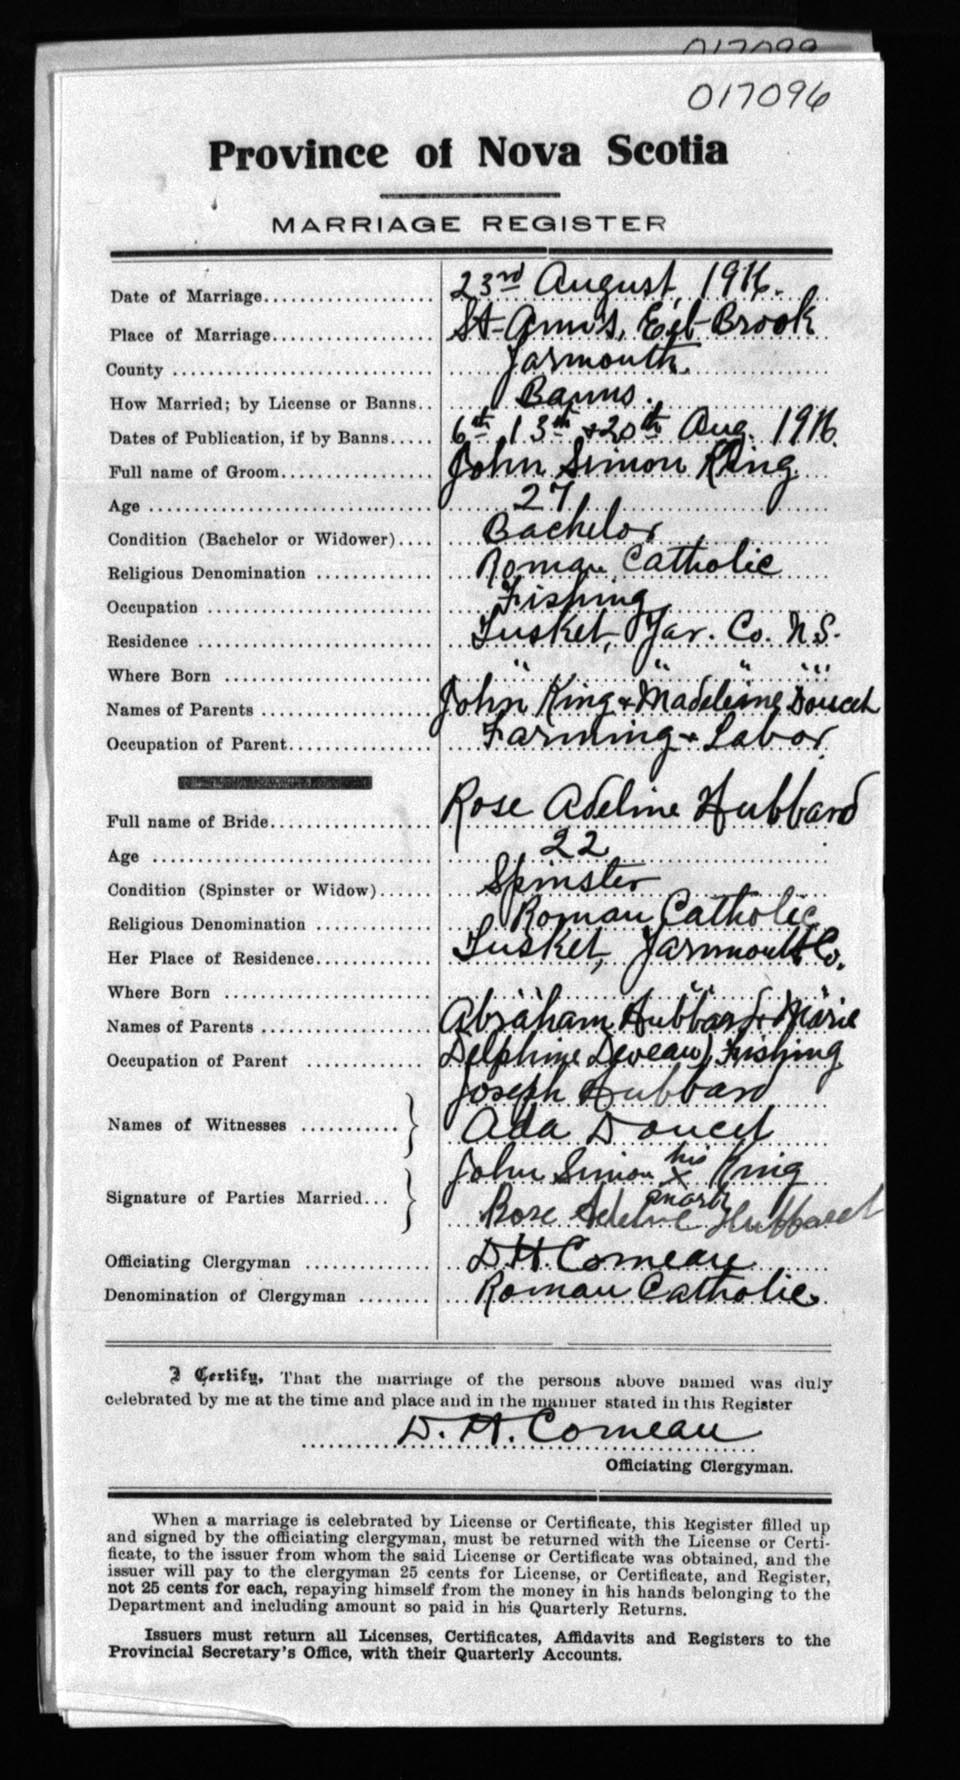 017099
017096
Province of Nova Scotia
MARRIAGE REGISTER
Date of Marriage.................. 23rd August, 1916.
Place of Marriage.................. St-Ann's, Eel-Brook
County .................. Yarmouth.
How Married; by License or Banns.. Banns.
Dates of Publication, if by Banns..... 6th, 13th & 20th Aug. 1916.
Full name of Groom.................. John Simon King
Age .................. 27
Condition (Bachelor or Widower).... Bachelor
Religious Denomination ............ Roman Catholic
Occupation .................. Fishing
Residence .................. Tusket, Yar. Co. N.S.
Where Born .................. " " " "
Names of Parents .................. John King & Madeleine Doucet
Occupation of Parent.................. Farming & Labor
Full name of Bride.................. Rose Adeline Hubbard
Age .................. 22
Condition (Spinster or Widow)...... Spinster
Religious Denomination ............ Roman Catholic
Her Place of Residence............ Tusket, Yarmouth Co.
Where Born .................. " " "
Names of Parents .................. Abraham Hubbard & Marie
Occupation of Parent ............ Delphine Deveau) Fishing
Joseph Hubbard
Names of Witnesses ........... } Ada Doucet
John Simon his X King
Signature of Parties Married... } mark
Rose Adeline Hubbard
Officiating Clergyman ............ D H Comeau
Denomination of Clergyman ........ Roman Catholic
I Certify, That the marriage of the persons above named was duly
celebrated by me at the time and place and in the manner stated in this Register
D. H. Comeau
Officiating Clergyman.
When a marriage is celebrated by License or Certificate, this Register filled up
and signed by the officiating clergyman, must be returned with the License or Certi-
ficate, to the issuer from whom the said License or Certificate was obtained, and the
issuer will pay to the clergyman 25 cents for License, or Certificate, and Register,
not 25 cents for each, repaying himself from the money in his hands belonging to the
Department and including amount so paid in his Quarterly Returns.
Issuers must return all Licenses, Certificates, Affidavits and Registers to the
Provincial Secretary's Office, with their Quarterly Accounts.